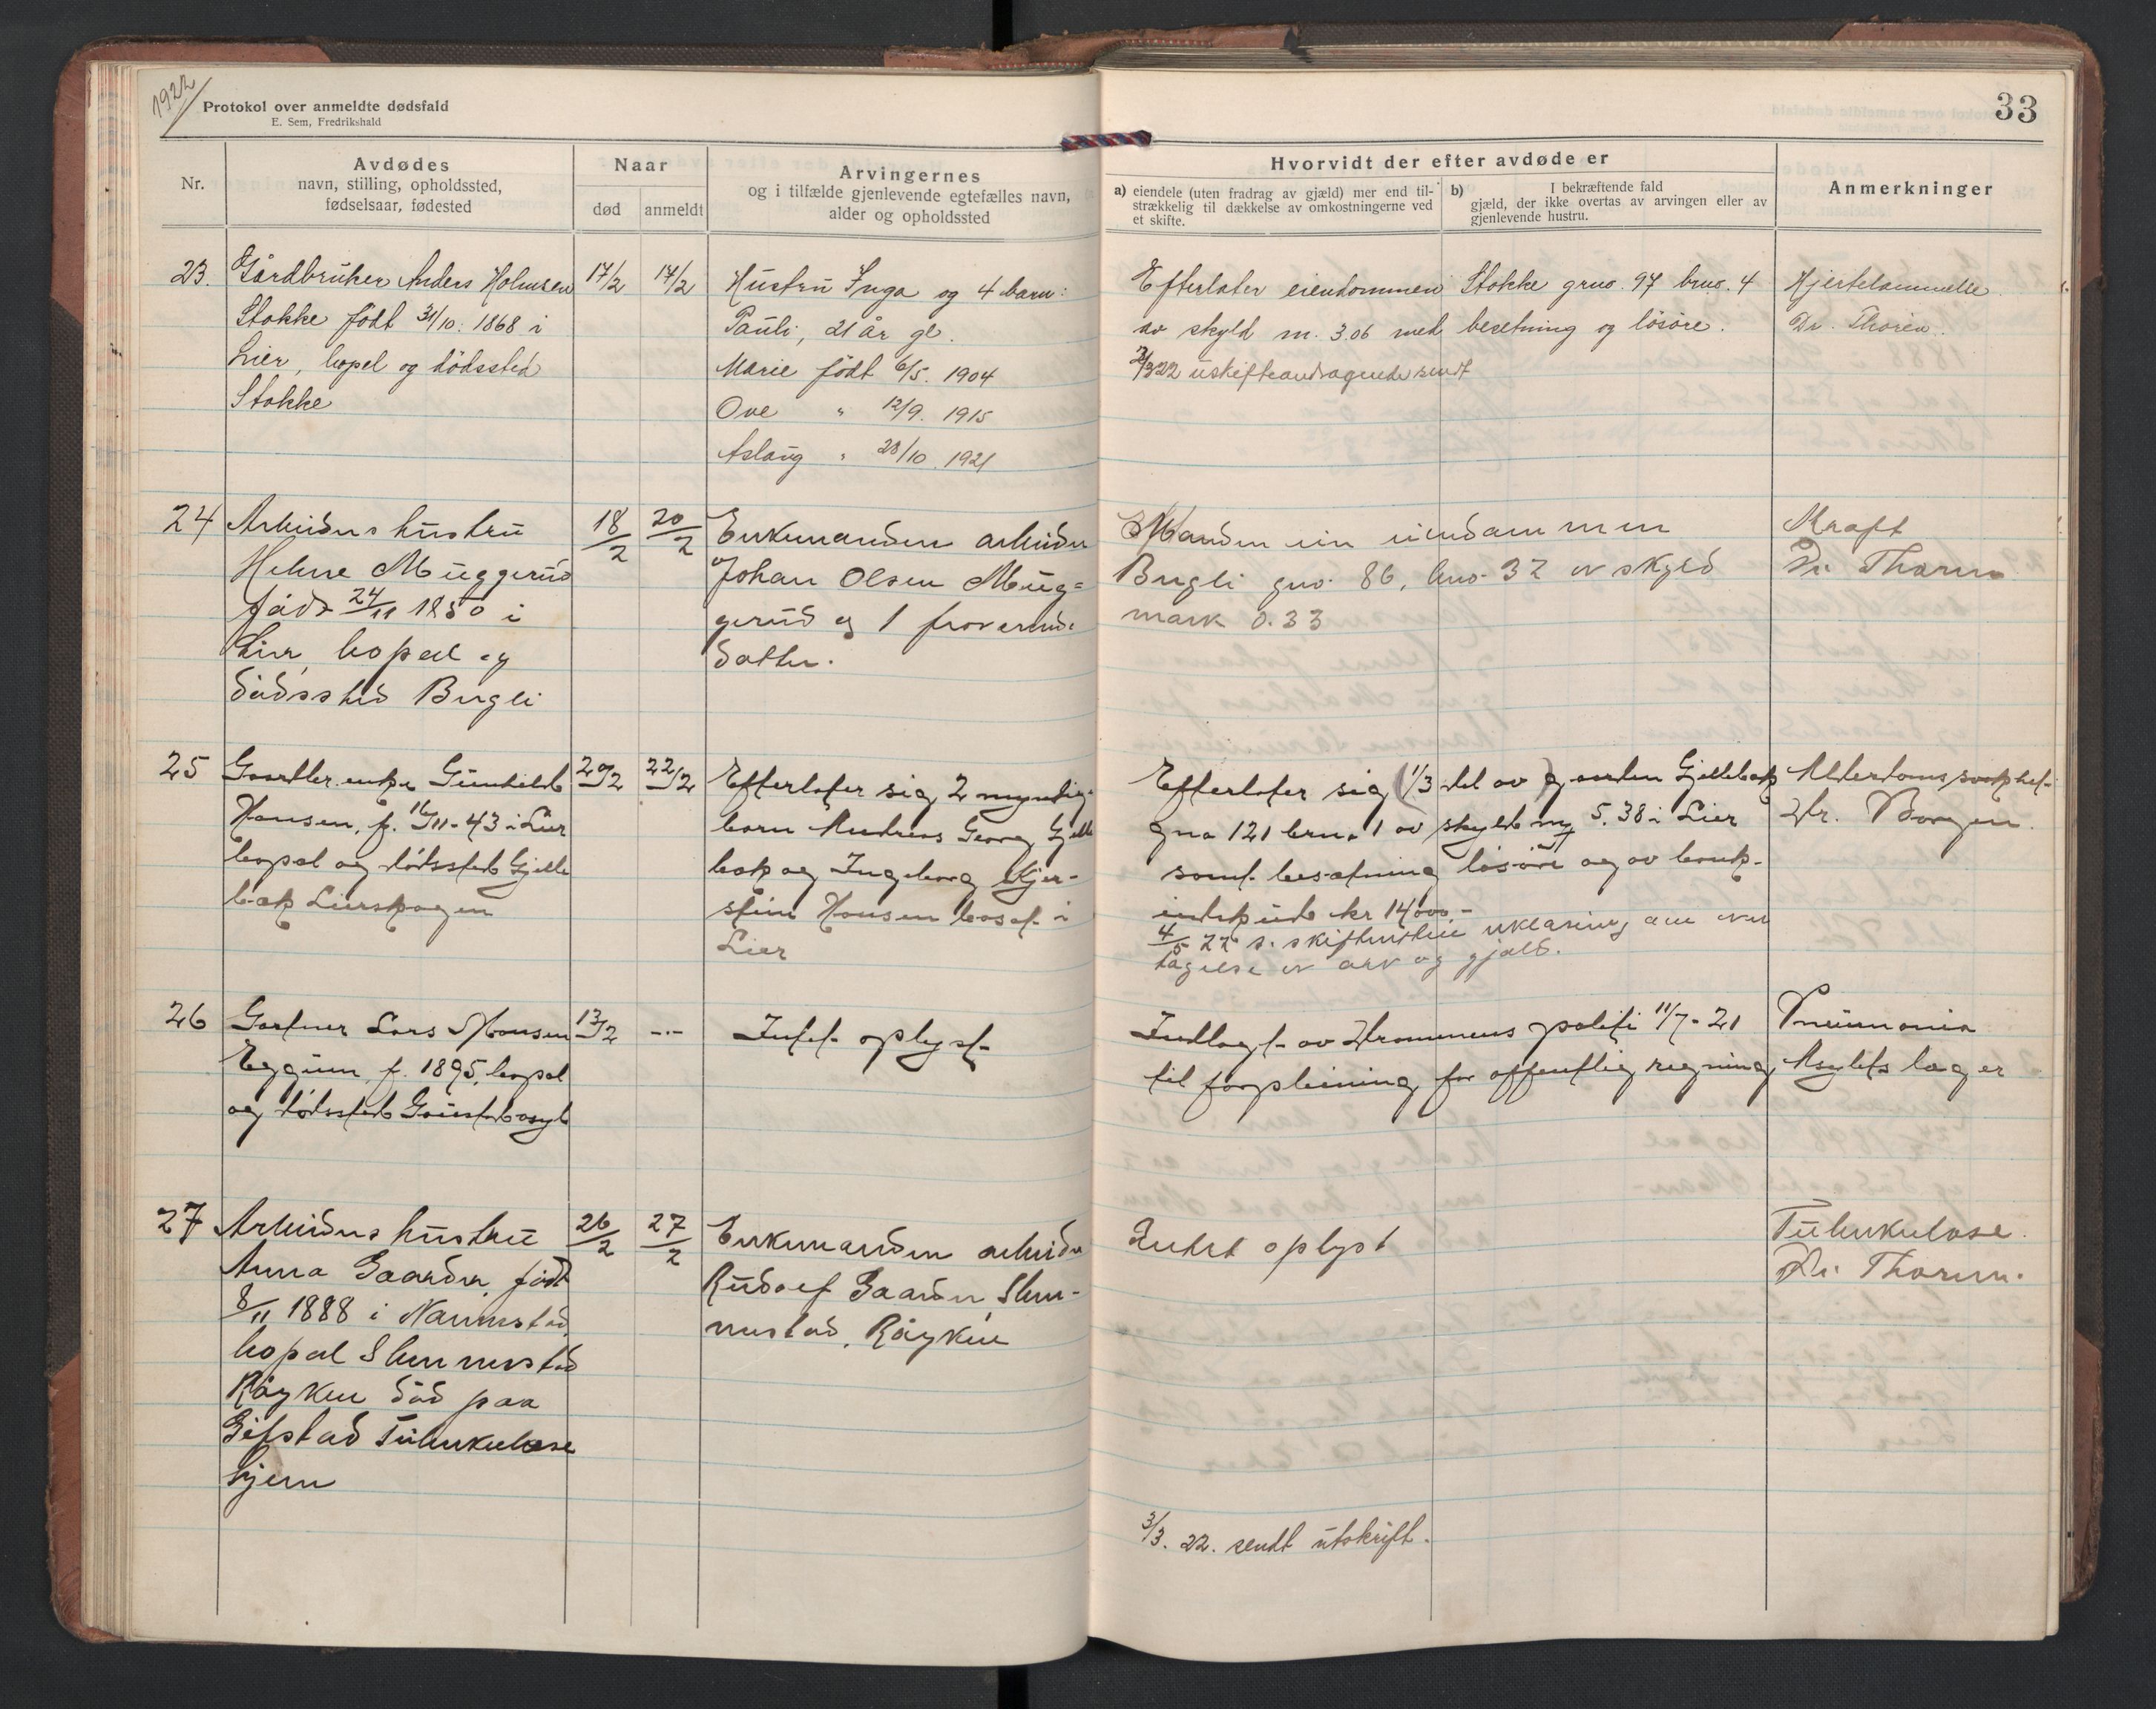 1922
Protokol over anmeldte dødsfald
E. Sem, Fredrikshald
33
Nr.
Avdødes
navn, stilling, opholdssted,
fødselsaar, fødested
Naar
død
anmeldt
Arvingernes
og i tilfælde gjenlevende egtefælles navn,
alder og opholdssted
Hvorvidt der efter avdøde er
a) eiendele (uten fradrag av gjæld) mer end til-
strækkelig til dækkelse av omkostningerne ved
et skifte.
b) I bekræftende fald
gjæld, der ikke overtas av arvingen eller av
gjenlevende hustru.
Anmerkninger
23.
Gårdbruker Anders Holmsen
Stokke født 31/10. 1868 i
Lier, bopel og dödssted
Stokke
17/2
17/2
Hustru Inga og 4 barn:
Pauli, 21 år gl.
Marie født 6/5. 1904
Ove " 12/9. 1915
Aslaug " 28/10. 1921
Efterlater eiendommen Stokke gno. 97 bno. 4
av skyld m. 3.06 med besetning og lösöre.
2/3 22 uskifteandragende sendt
Hjertelammelse
Dr. Thoren.
24
Arbeiders hustru
Helene Muggerud
född 24/11 1850 i
Lier, bopæl og
dödssted Bugli
18/2
20/2
Enkemanden arbeider
Johan Olsen Mug=
gerud og 1 fraværende
datter.
Manden ein eiendommen
Bugli gno. 86, bno. 37 av skyld
mark 0.33
Kraft
Dr. Thoren
25
Gaardbr. enke Gunhild
Hansen, f. 16/11-43 i Lier
bopæl og dödssted Gjelle
bæk Lierskogen
20/2
22/2
Efterlater sig 2 myndige
barn Andreas Georg Gjelle
bæk og Ingeborg Kjer-
stine Hansen bosat i
Lier
Efterlater sig (1/3 del av) gaarden Gjellebæk
gno 121 bruno 1 av skyld m 5.38 i Lier
samt besætning lösöre og av bank-
indskud kr 14000.-
4/5 22 s. skifteretten erklæring om over
tagelse av arv og gjæld.
Alderdomssvakhet-
Dr. Borgen.
26
Gartner Lars Hansen
Eggum, f. 1895, bopæl
og dödssted Gaustad asyl
13/2
-·-
Intet oplyst
Indlagt av Drammens politi 11/7-21
til forpleining for offentlig regning
Pneumonia
Asylets læger
27
Arbeiders hustru
Anna Gaarder, född
8/11 1888 i
bopæl Slemmestad
Röyken död paa
Gifstad Tuberkulose
hjem
26/2
27/2
Enkemanden arbeider
Rudolf Gaarder, Slem-
mestad, Röyken
Intet oplyst
Tuberkulose.
Dr. Thoren.
3/3. 22. sendt utskrift.